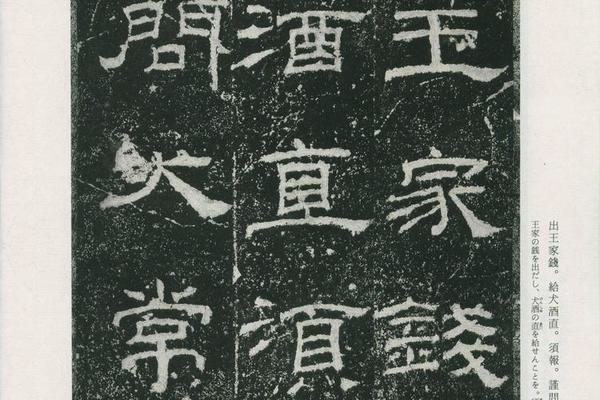 出王家錢。給犬酒直。須報。謹問
王家の銭を出だし、犬酒の直を給せんことを。
王家錢
酒直須
問大常